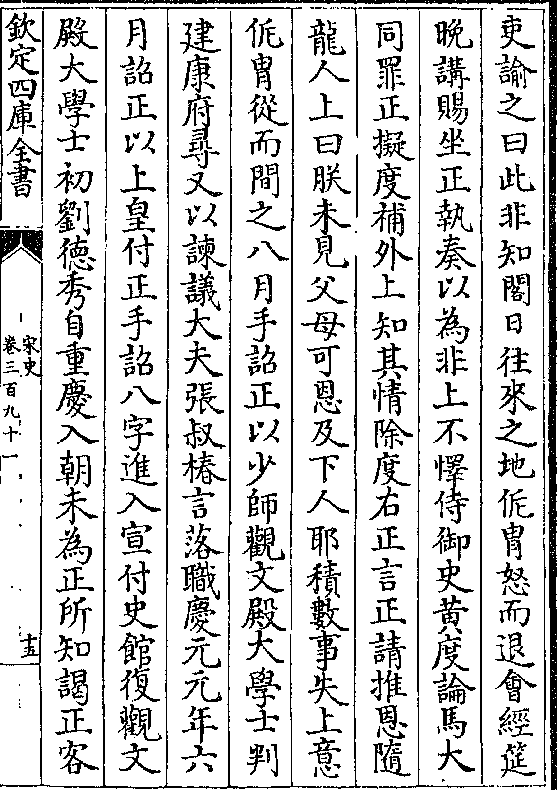 吏諭之曰此非知閤日往來之地侂胄怒而退會經筵
晚講賜坐正執奏以為非上不懌侍御史黄度論馬大
同罪正擬度補外上知其情除度右正言正請推恩隨
龍人上曰朕未見父母可恩及下人耶積數事失上意
侂胄從而間之八月手詔正以少師觀文殿大學士判
建康府尋又以諫議大夫張叔椿言落職慶元元年六
月詔正以上皇付正手詔八字進入宣付史館復觀文
殿大學士初劉德秀自重慶入朝未為正所知謁正客
欽定四庫全書
宋史
卷三百九十一
十五